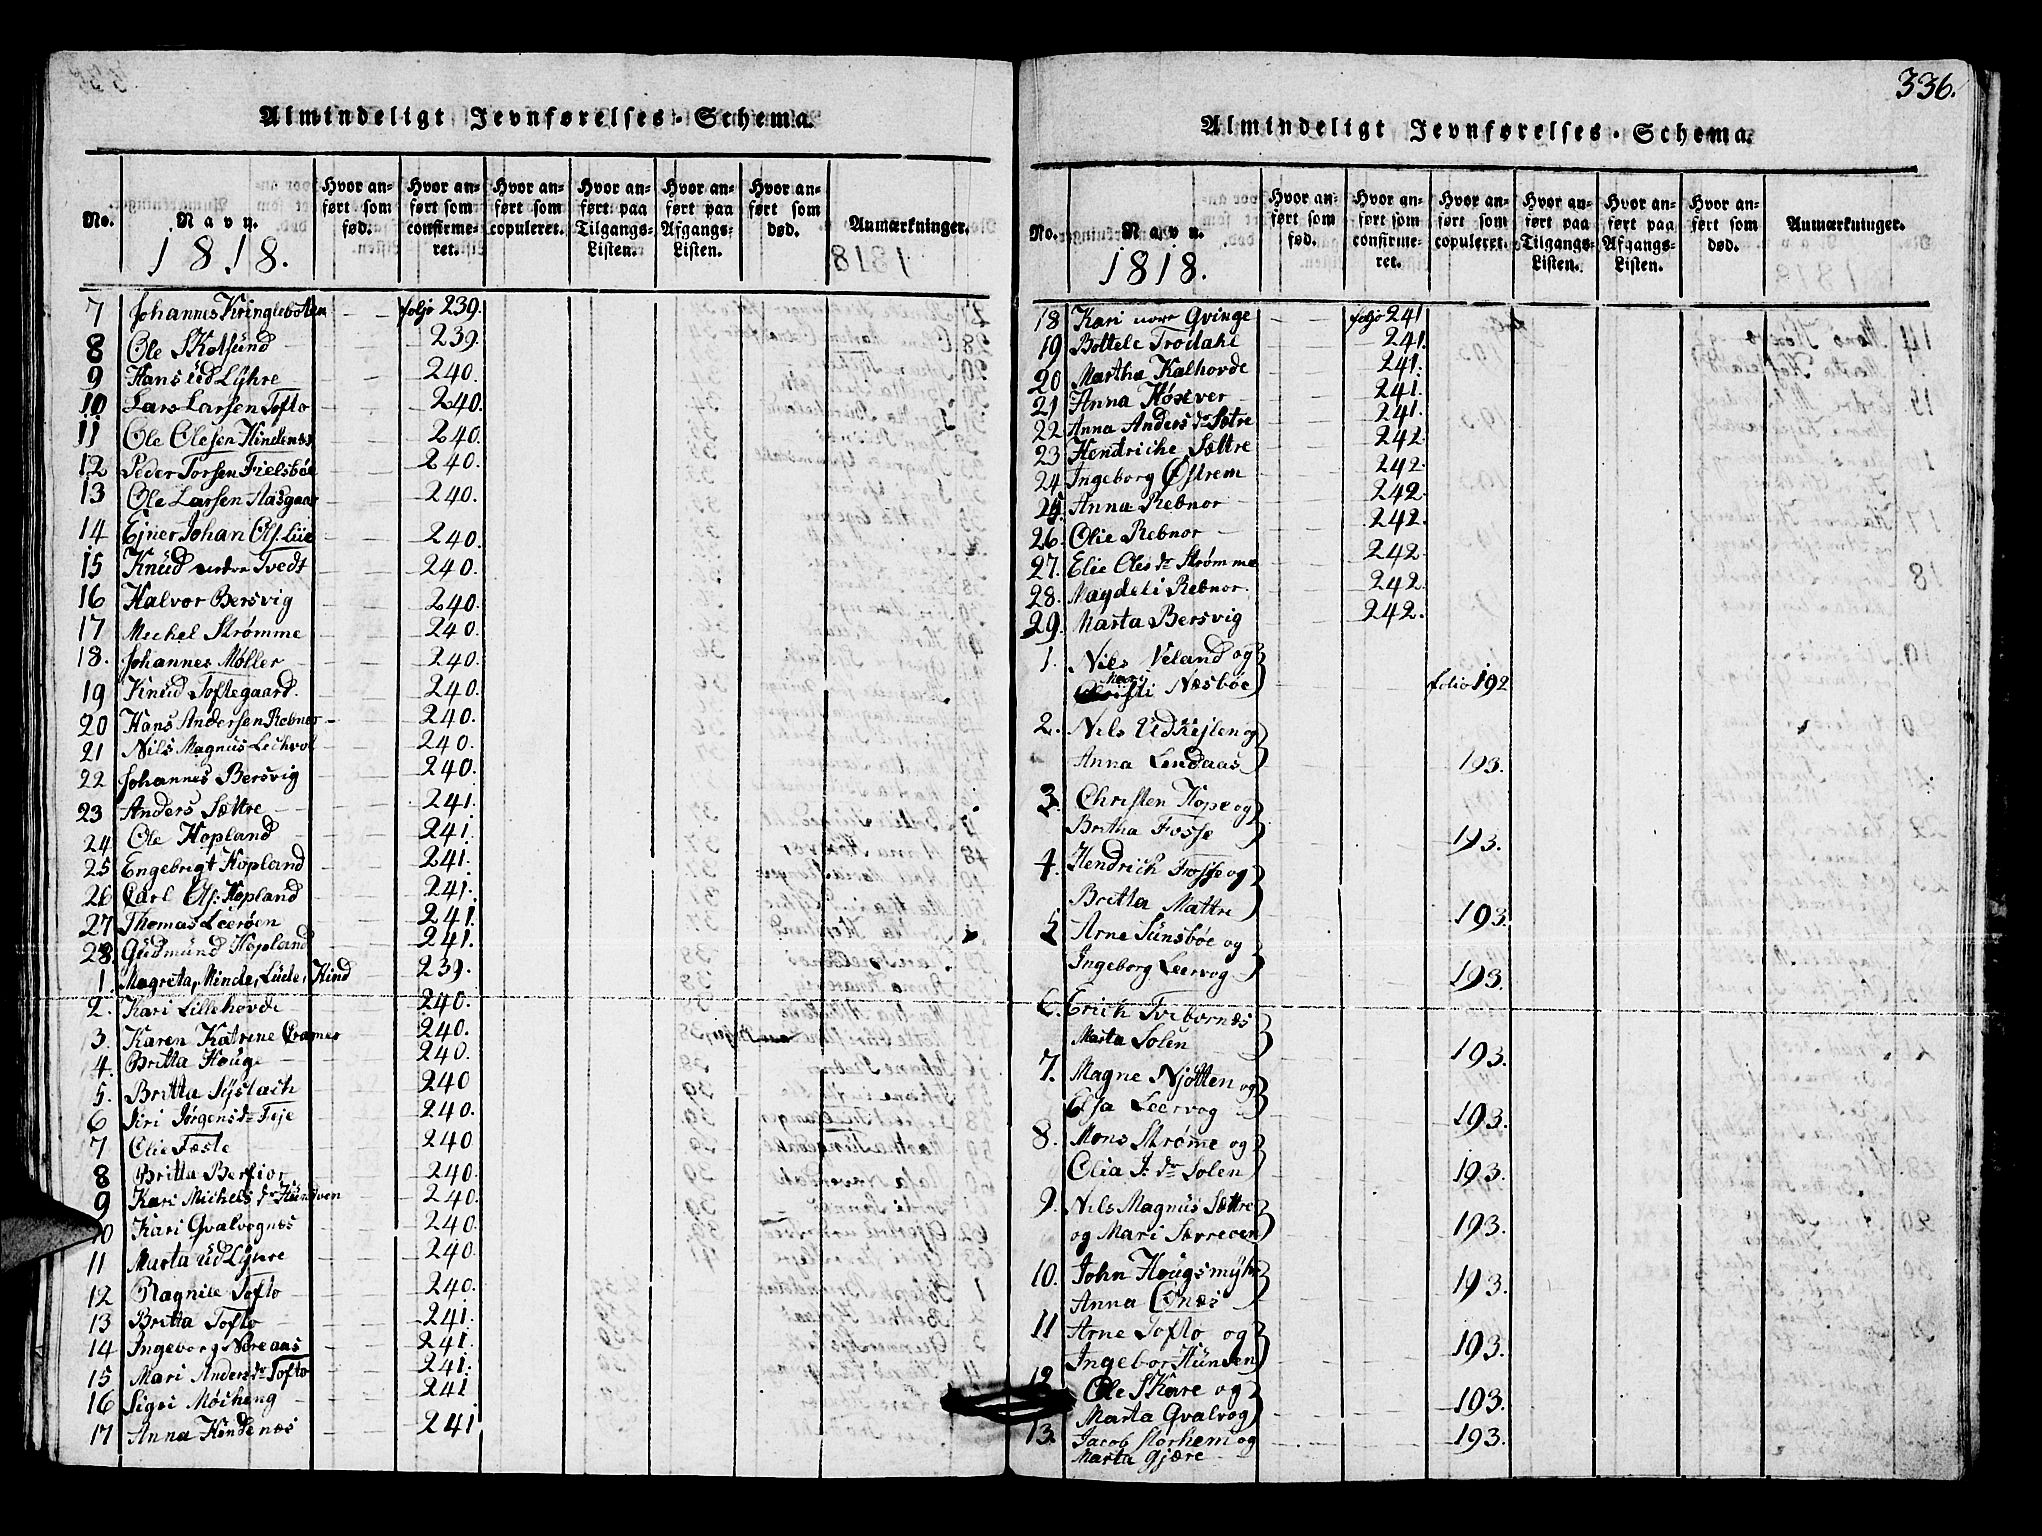 Almindeligt Jevnførelses-Schema.
No.
Navn.
Hvor anført som fød.
Hvor anført som confirmeret.
Hvor anført som copuleret.
Hvor anført paa Tilgangs-Listen.
Hvor anført paa Afgangs-Listen.
Hvor anført som død.
Anmærkninger.
1818.
7 Johannes Kringlebotten folio 239.
8 Ole Skotsund 239.
9 Hans üd Lÿhre 240.
10 Lars Larsen Tofto 240.
11 Ole Olesen Hindenæs 240.
12 Peder Torsen Fielsbøe 240.
13 Ole Larsen Aasgaar 240.
14 Ejner Johan Ols. Liie 240.
15 Knüd Tvedt 240.
16 Halvor Bersvig 240.
17 Mechel Strømme 240.
18. Johannes Møller 240.
19 Knüd Toftegaard. 240.
20 Hans Andersen Rebnor 240.
21 Nils Magnus Lechvol 240.
22 Johannes Bersvig 240.
23 Anders Sættre 241.
24 Ole Hopland 241.
25 Engebrigt Hopland 241.
26 Carl Ols: Hopland 241.
27 Thomas Leerøen 241.
28. Güdmünd Hopland 241.
1. Magreta, Minde, Lüde, Hind 239.
2. Kari Lillehovde 240.
3. Karen Katrine Cramer 240.
4. Britta Houge 240.
5. Britta Sÿslach 240
6 Siri Jørgensdr Feje 240.
7 Olie Fæste 240
8 Britta Berfior 240.
9 Kari Michelsdr Hundven 240.
10 Kari Qvalvognes 240.
11 Marta üd Lÿhre 240.
12 Ragnile Tofto 240.
13 Britta Tofto 241.
14 Ingeborg Nereaas 241.
15 Mari Andersdr Tofto 241.
16 Sigri Møcheng 241
17 Anna Hendenæs 241
336.
Almindeligt Jevnførelses-Schema.
No.
Navn.
Hvor anført som fød.
Hvor anført som confirmeret.
Hvor anført som copuleret.
Hvor anført paa Tilgangs-Listen.
Hvor anført paa Afgangs-Listen.
Hvor anført som død.
Anmærkninger.
1818.
18 Kari Qvinge folio 241
19 Bottele Trodahl 241.
20 Martha Kalhovde 241.
21 Anna Høsever 241.
22 Anna Andersdr Sætre 241.
23 Hendriche Sættre 242.
24 Ingeborg Østrem 242.
25. Anna Rebnor 242.
26. Olie Rebnor 242.
27. Elie Olesdr Strømme 242
28. Magdeli Rebnor. 242.
29. Marta Bersvig 242.
1. Nils Veland og
Mari Næsbøe folio 192
2. Nils Üdkiÿlen og
Anna Lendaas 193.
3. Christen Hope og
Britha Fosse 193.
4. Hendrich Fosse og
Britta Mattre 193.
5 Arne Sünsbøe og
Ingeborg Leervog 193.
6. Erich Tvebornæs
Marta Solen 193.
7. Magne Njøtten og
Elsa Leervog 193.
8. Mons Strøme og
Olia J. dr Solen 193.
9. Nils Magnus Sættre
og Mari Særeven 193.
10. John Hougsmÿhr
Anna Ones 193.
11 Arne Tofto og
Ingebor Hunven 193.
12 Ole Skare og
Marta Qvalvog 193.
13. Jacob Storhem og 193.
Marta Gjære